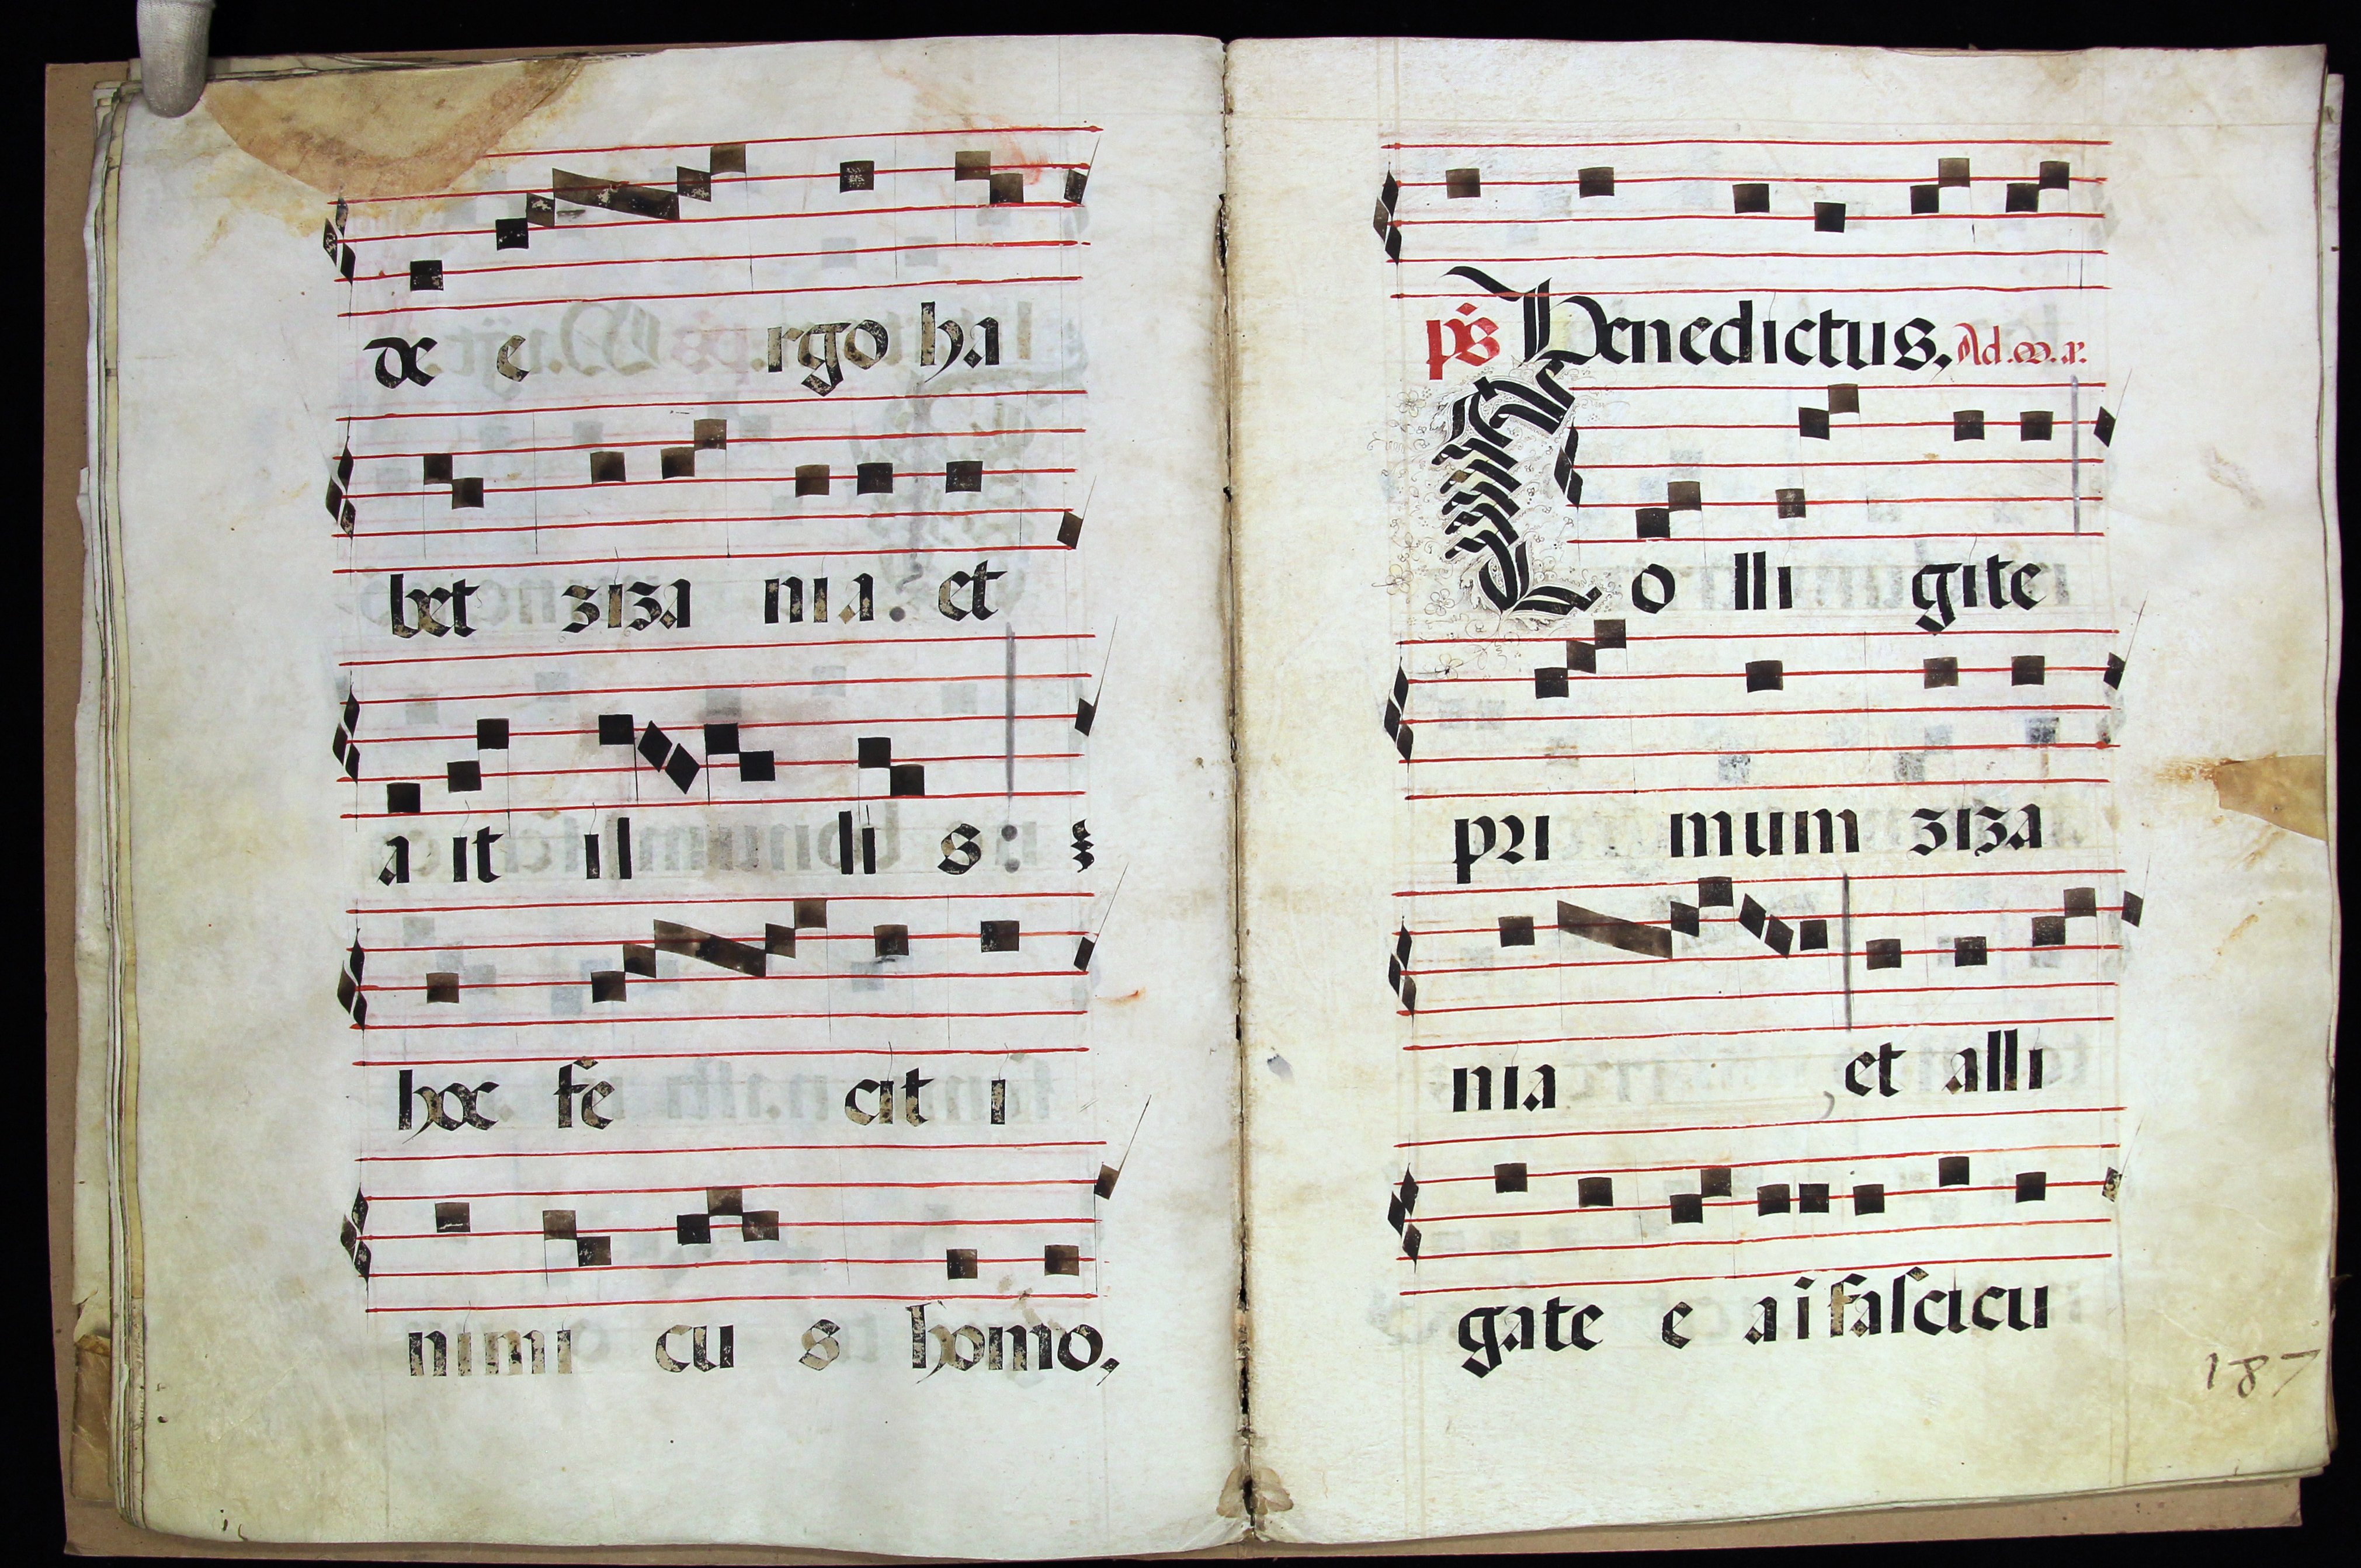 de e rgo ha
bet ziza nia. et
a it il li s:
hoc fe cit i
nimi cu s homo,
ps Benedictus, Ad.
Co lli gite
pri mum ziza
nia , et alli
gate e a i fascicu
187